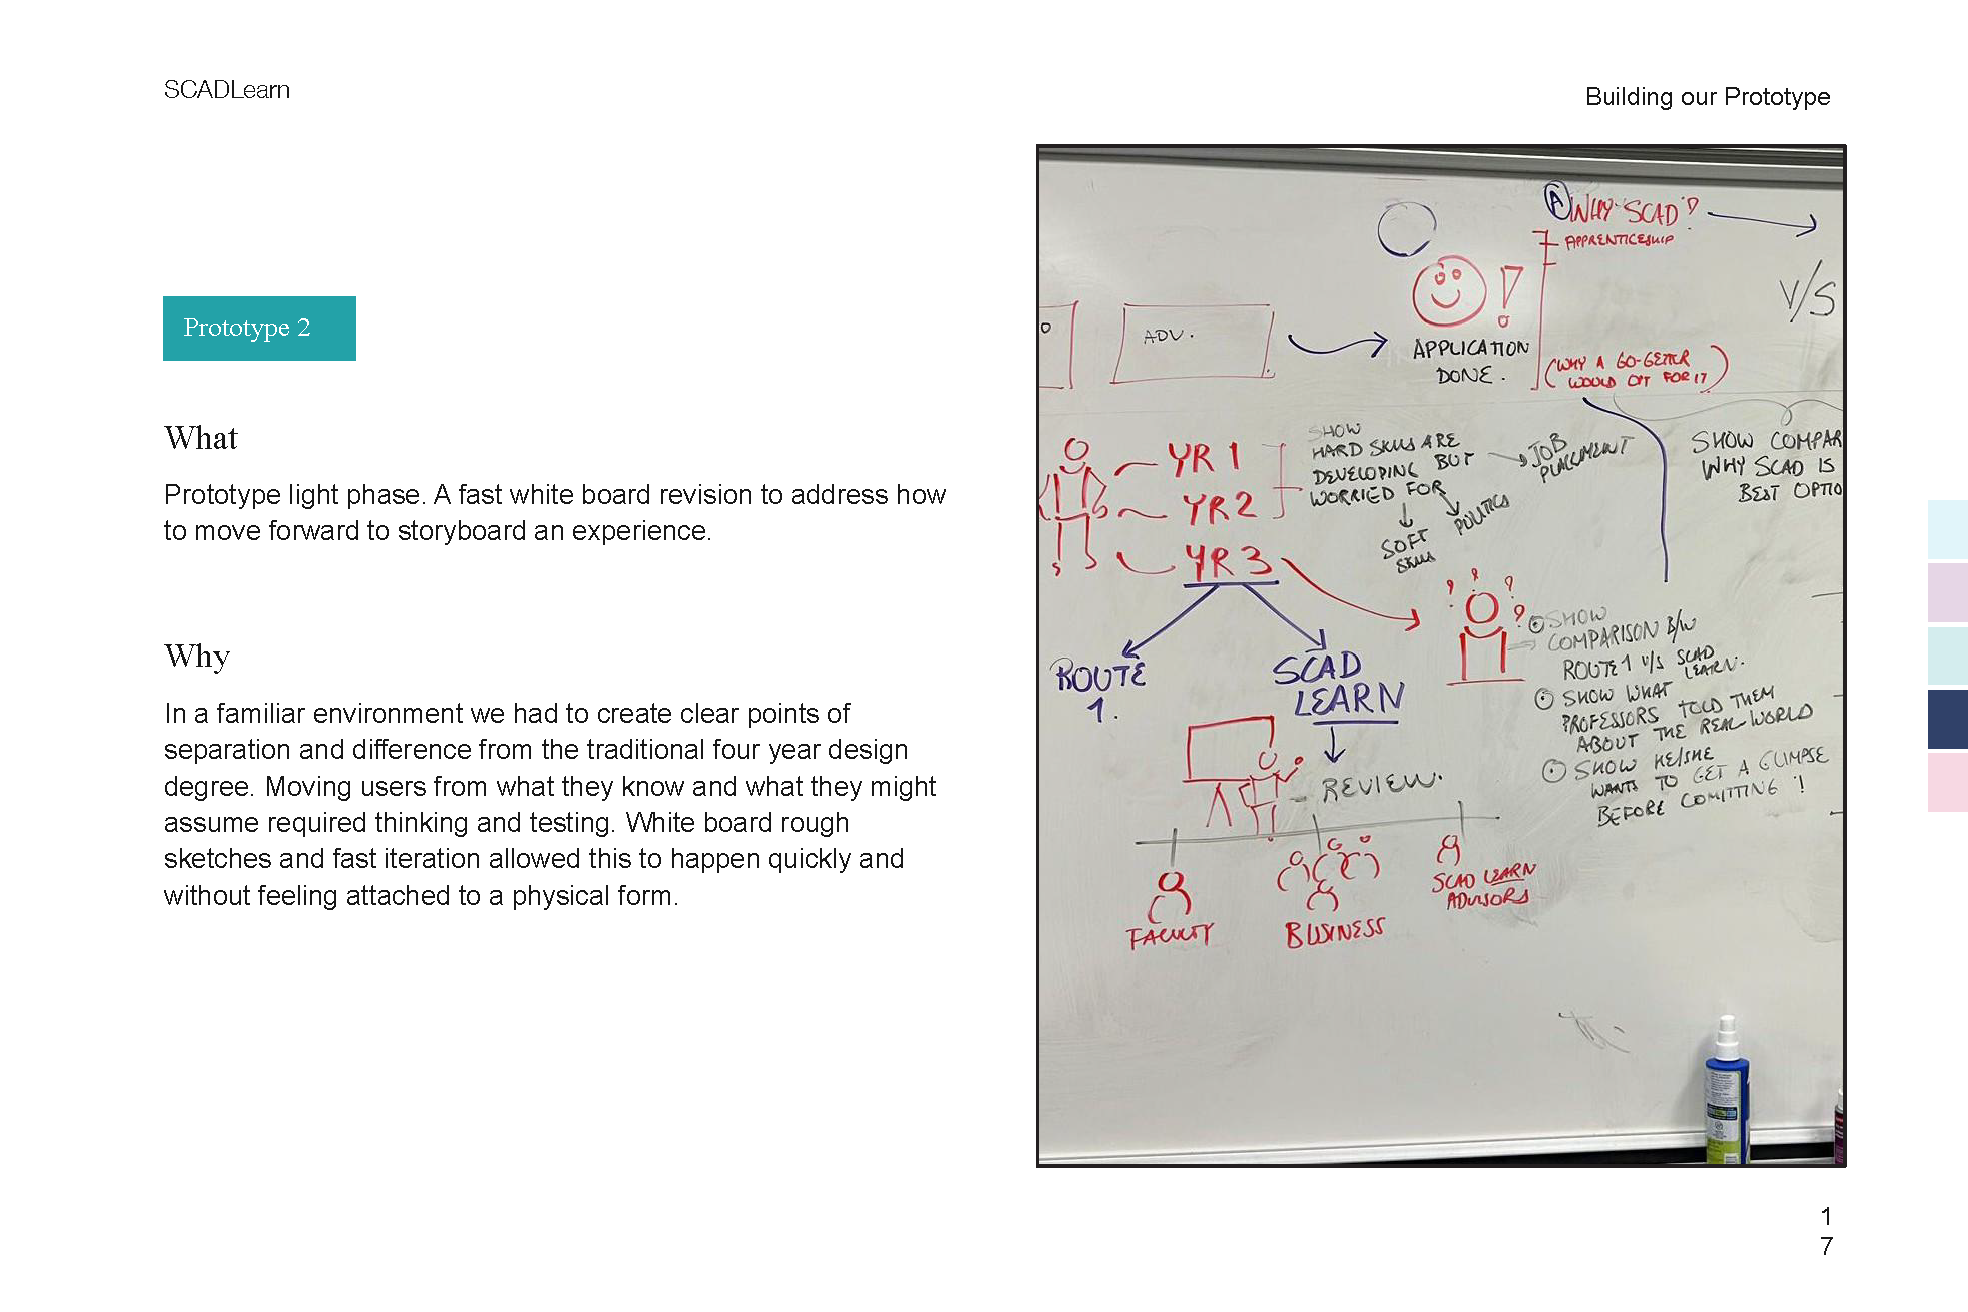 SCADLearn
Building our Prototype
Prototype 2
What
Prototype light phase. A fast white board revision to address how
to move forward to storyboard an experience.
Why
In a familiar environment we had to create clear points of
separation and difference from the traditional four year design
degree. Moving users from what they know and what they might
assume required thinking and testing. White board rough
sketches and fast iteration allowed this to happen quickly and
without feeling attached to a physical form.
A WHY SCAD?
APPRENTICESHIP
V/S
ADV.
APPLICATION
DONE.
(WHY A GO-GETTER
WOULD OPT FOR IT)
YR 1
YR 2
YR 3
SHOW
HARD SKILLS ARE
DEVELOPING BUT
WORRIED FOR
JOB
PLACEMENT
POLITICS
SOFT
SKILLS
SHOW COMPAR
WHY SCAD IS
BEST OPTIO
ROUTE
1.
SCAD
LEARN
REVIEW.
SHOW
COMPARISON B/W
ROUTE 1 V/S SCAD
LEARN.
SHOW WHAT
PROFESSORS TOLD THEM
ABOUT THE REAL WORLD
SHOW HE/SHE
WANTS TO GET A GLIMPSE
BEFORE COMITTING !
FACULTY
BUSINESS
SCAD LEARN
ADVISORS
1
7